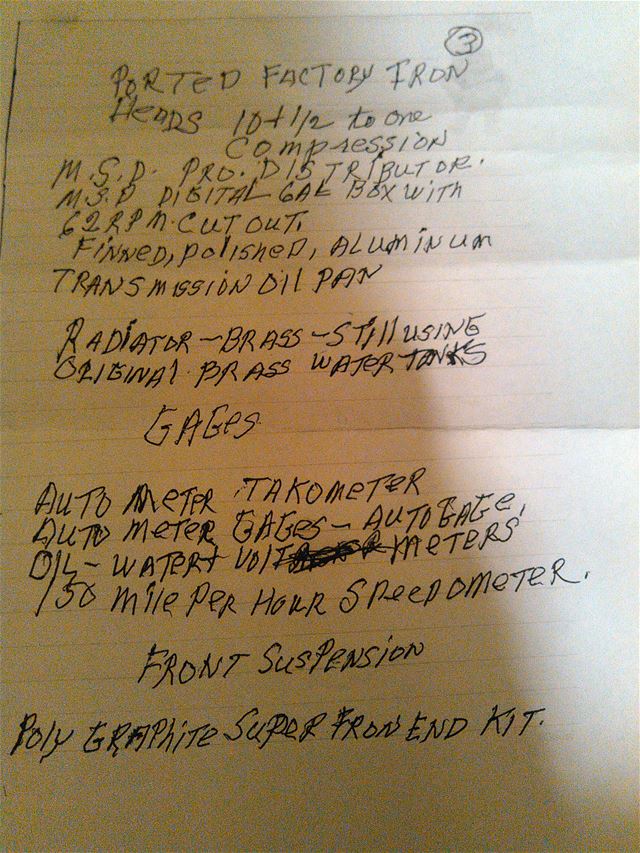 3
PORTED FACTORY IRON
HEADS 10+1/2 to one
COMPRESSION
M.S.D. PRO. DISTRIBUTOR.
M.S.D DIGITAL 6AL BOX WITH
62RPM.CUT OUT.
FINNED, POLISHED, ALUMINUM
TRANSMISSION OIL PAN
RADIATOR-BRASS-STILL USING
ORIGINAL BRASS WATER TANKS
GAGES
AUTO METER TAKOMETER
AUTO METER GAGES-AUTOGAGE,
OIL-WATER+ VOLT METERS
150 MILE PER HOUR SPEEDOMETER.
FRONT SUSPENSION
POLY GRAPHITE SUPER FRON END KIT.